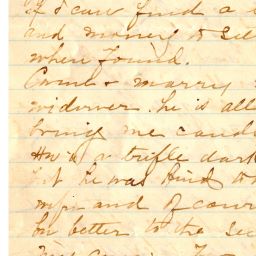 If I can find a
and money to
when found.
marry
widower. he is all
bring me
He is a trifle dark
but he was kind to
and of cour
be better to the sec